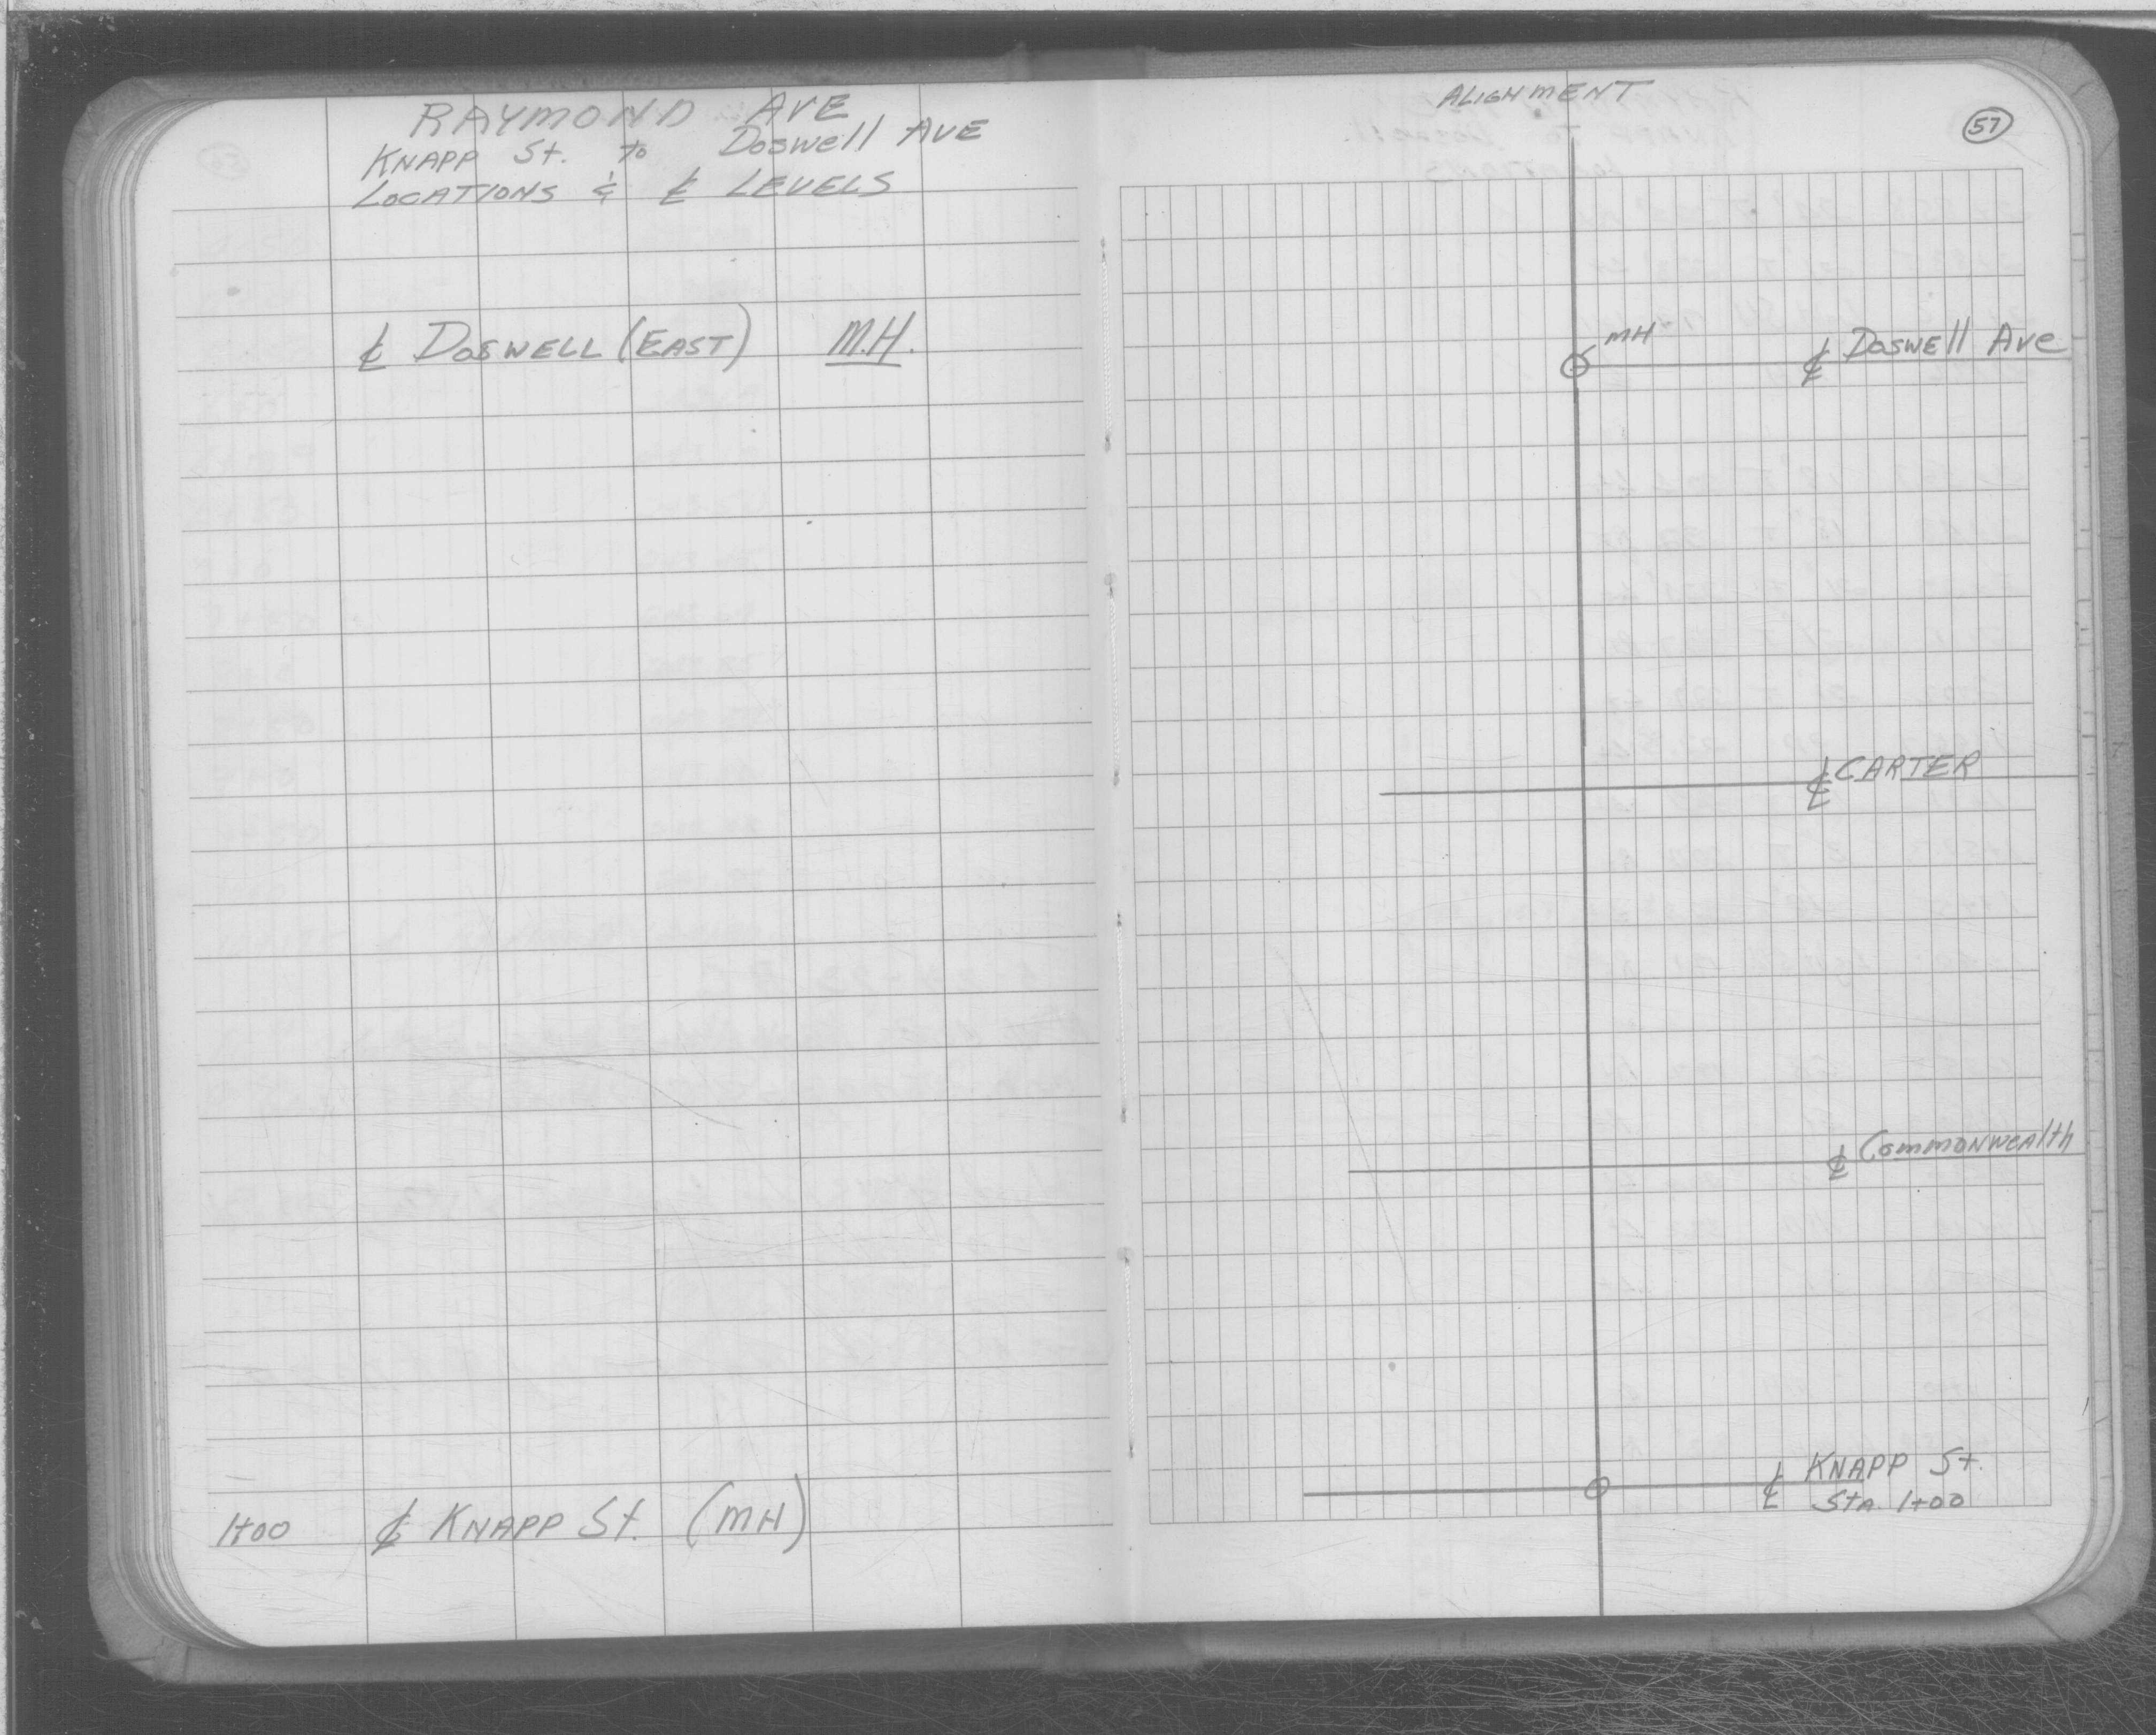 RAYMOND AVE
KNAPP St. to Doswell AVE
LOCATIONS & ℄ LEVELS
℄ DOSWELL (EAST) M.H.
1+00 ℄ KNAPP St. (MH)
ALIGNMENT
57
MH
℄ Doswell Ave
℄ CARTER
℄ Commonwealth
℄ KNAPP St.
Sta. 1+00